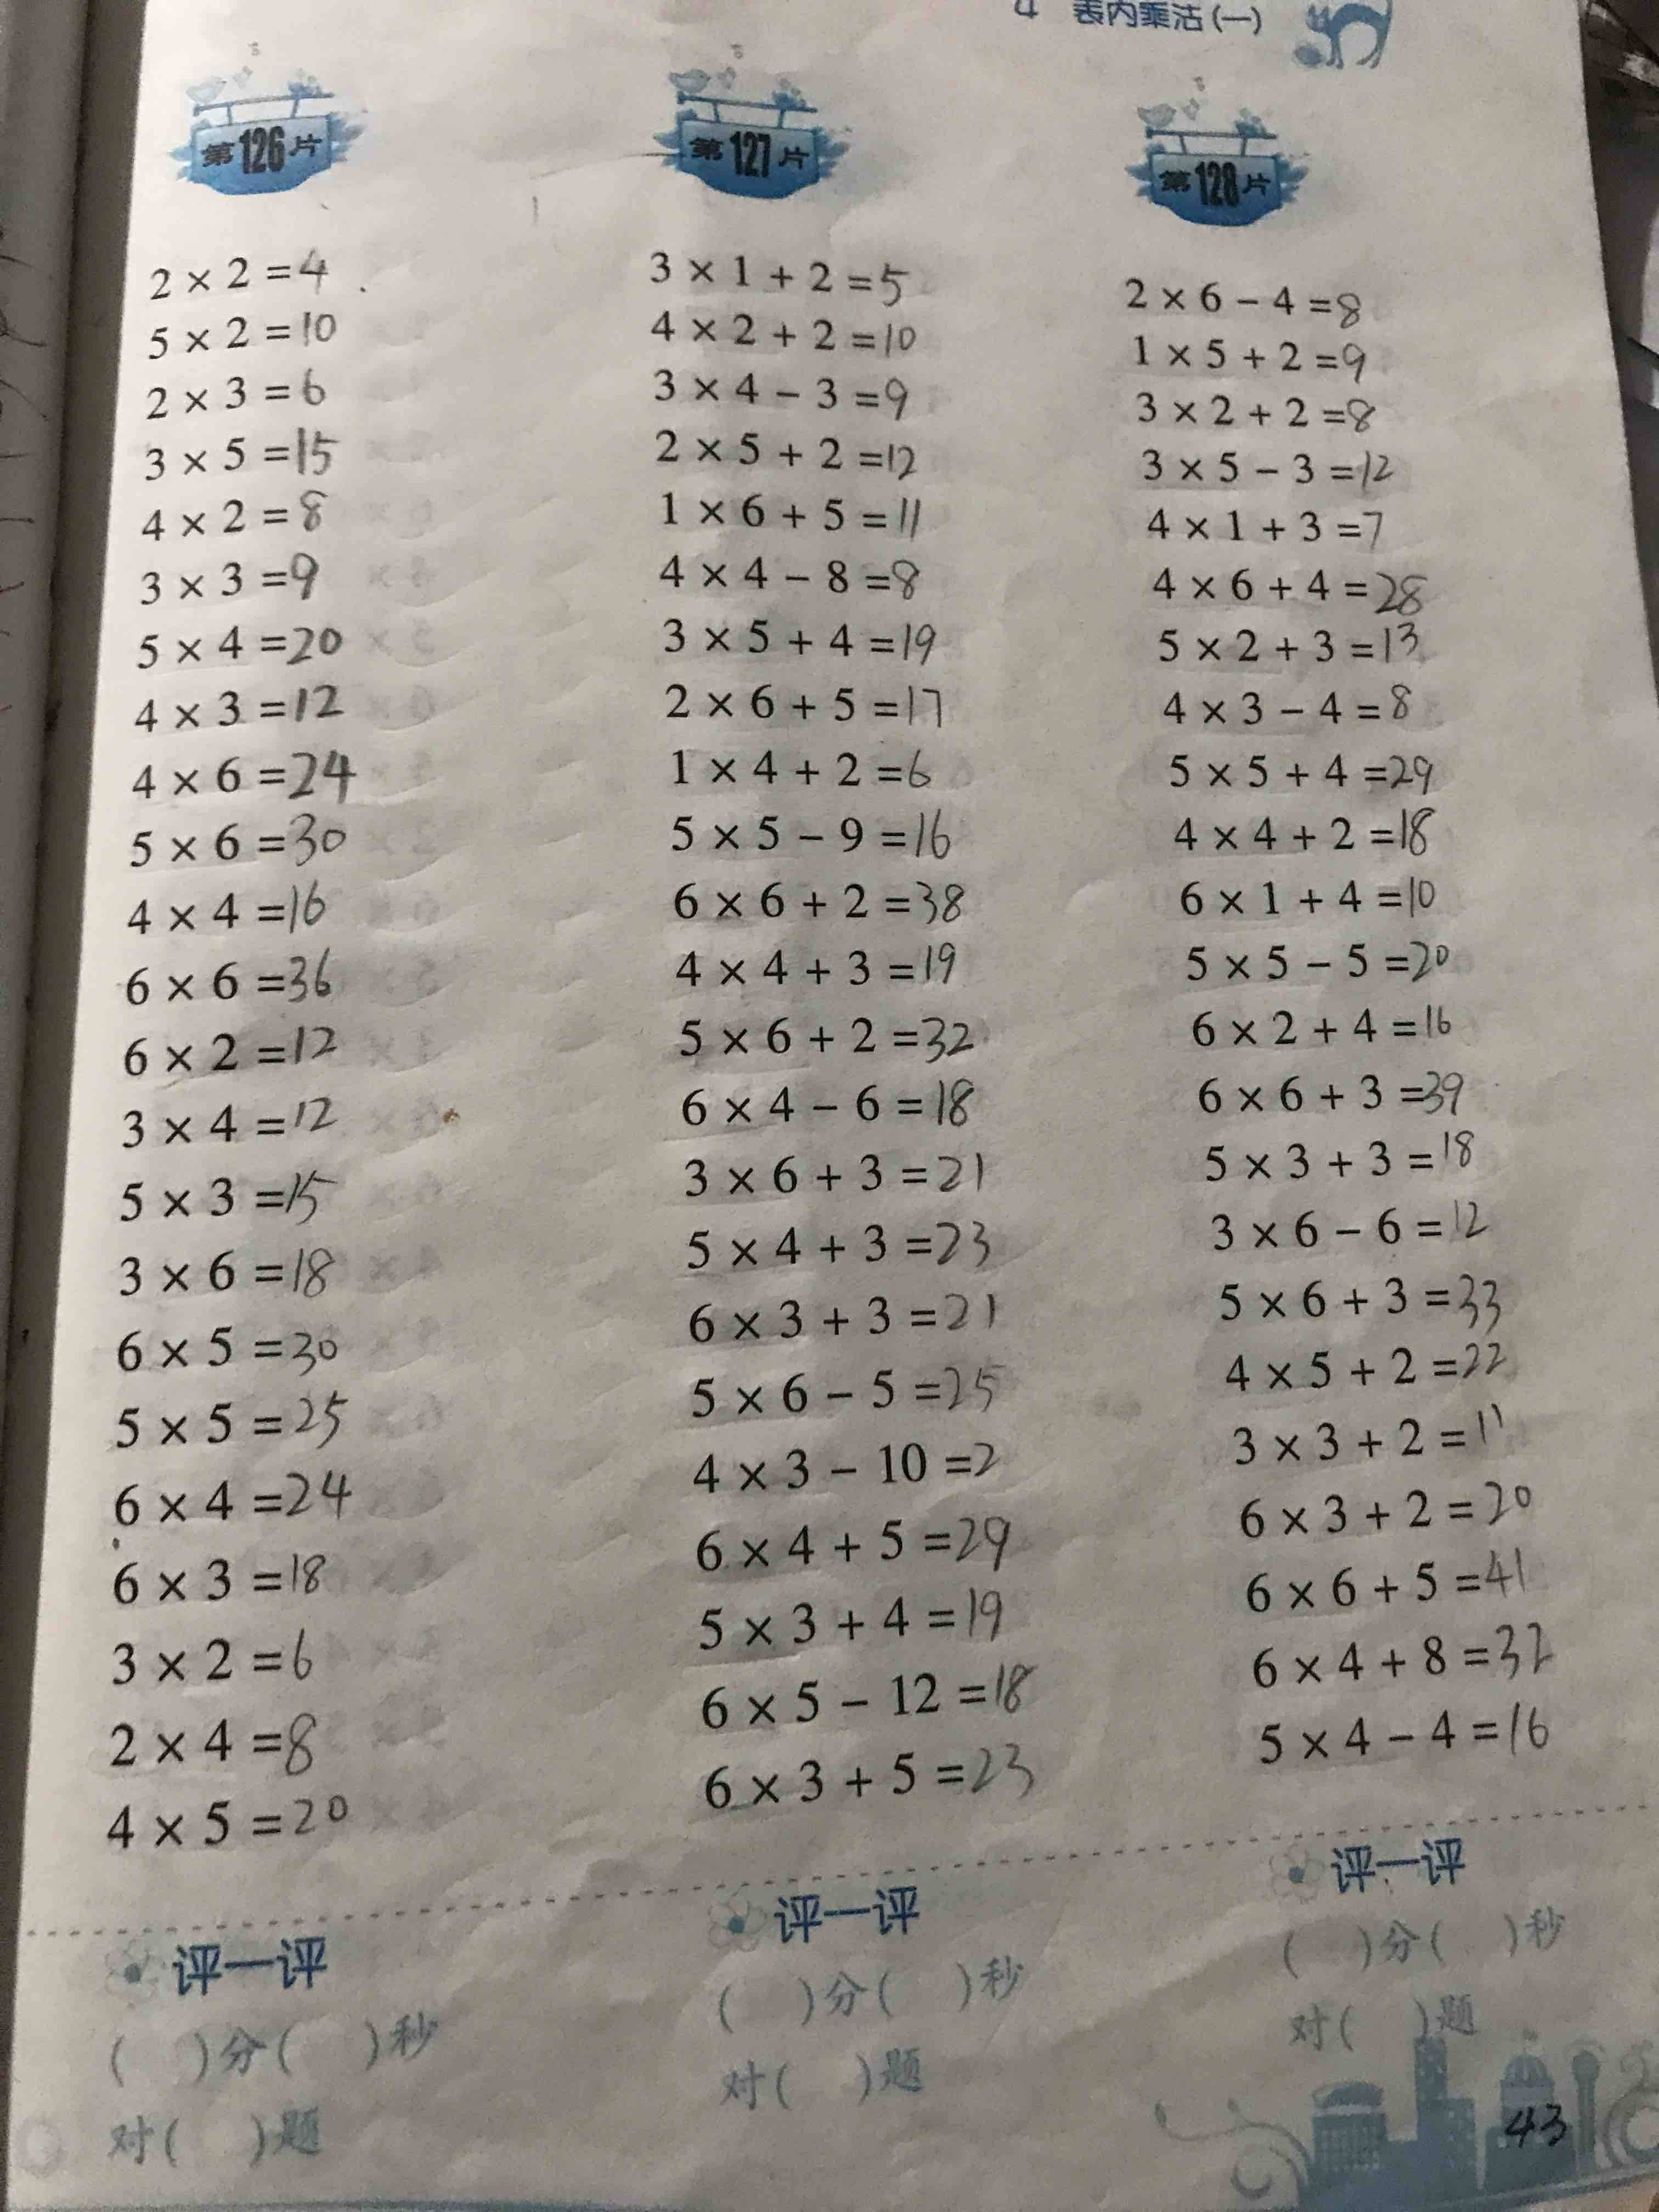 4 表内乘法(一)
第126片
2 × 2 =4
5 × 2 =10
2 × 3 =6
3 × 5 =15
4 × 2 =8
3 × 3 =9
5 × 4 =20
4 × 3 =12
4 × 6 =24
5 × 6 =30
4 × 4 =16
6 × 6 =36
6 × 2 =12
3 × 4 =12
5 × 3 =15
3 × 6 =18
6 × 5 =30
5 × 5 =25
6 × 4 =24
6 × 3 =18
3 × 2 =6
2 × 4 =8
4 × 5 =20
评一评
( )分( )秒
对( )题
第127片
3 × 1 + 2 =5
4 × 2 + 2 =10
3 × 4 - 3 =9
2 × 5 + 2 =12
1 × 6 + 5 =11
4 × 4 - 8 =8
3 × 5 + 4 =19
2 × 6 + 5 =17
1 × 4 + 2 =6
5 × 5 - 9 =16
6 × 6 + 2 =38
4 × 4 + 3 =19
5 × 6 + 2 =32
6 × 4 - 6 =18
3 × 6 + 3 =21
5 × 4 + 3 =23
6 × 3 + 3 =21
5 × 6 - 5 =25
4 × 3 - 10 =2
6 × 4 + 5 =29
5 × 3 + 4 =19
6 × 5 - 12 =18
6 × 3 + 5 =23
评一评
( )分( )秒
对( )题
第128片
2 × 6 - 4 =8
1 × 5 + 2 =9
3 × 2 + 2 =8
3 × 5 - 3 =12
4 × 1 + 3 =7
4 × 6 + 4 =28
5 × 2 + 3 =13
4 × 3 - 4 =8
5 × 5 + 4 =29
4 × 4 + 2 =18
6 × 1 + 4 =10
5 × 5 - 5 =20
6 × 2 + 4 =16
6 × 6 + 3 =39
5 × 3 + 3 =18
3 × 6 - 6 =12
5 × 6 + 3 =33
4 × 5 + 2 =22
3 × 3 + 2 =11
6 × 3 + 2 =20
6 × 6 + 5 =41
6 × 4 + 8 =32
5 × 4 - 4 =16
评一评
( )分( )秒
对( )题
43